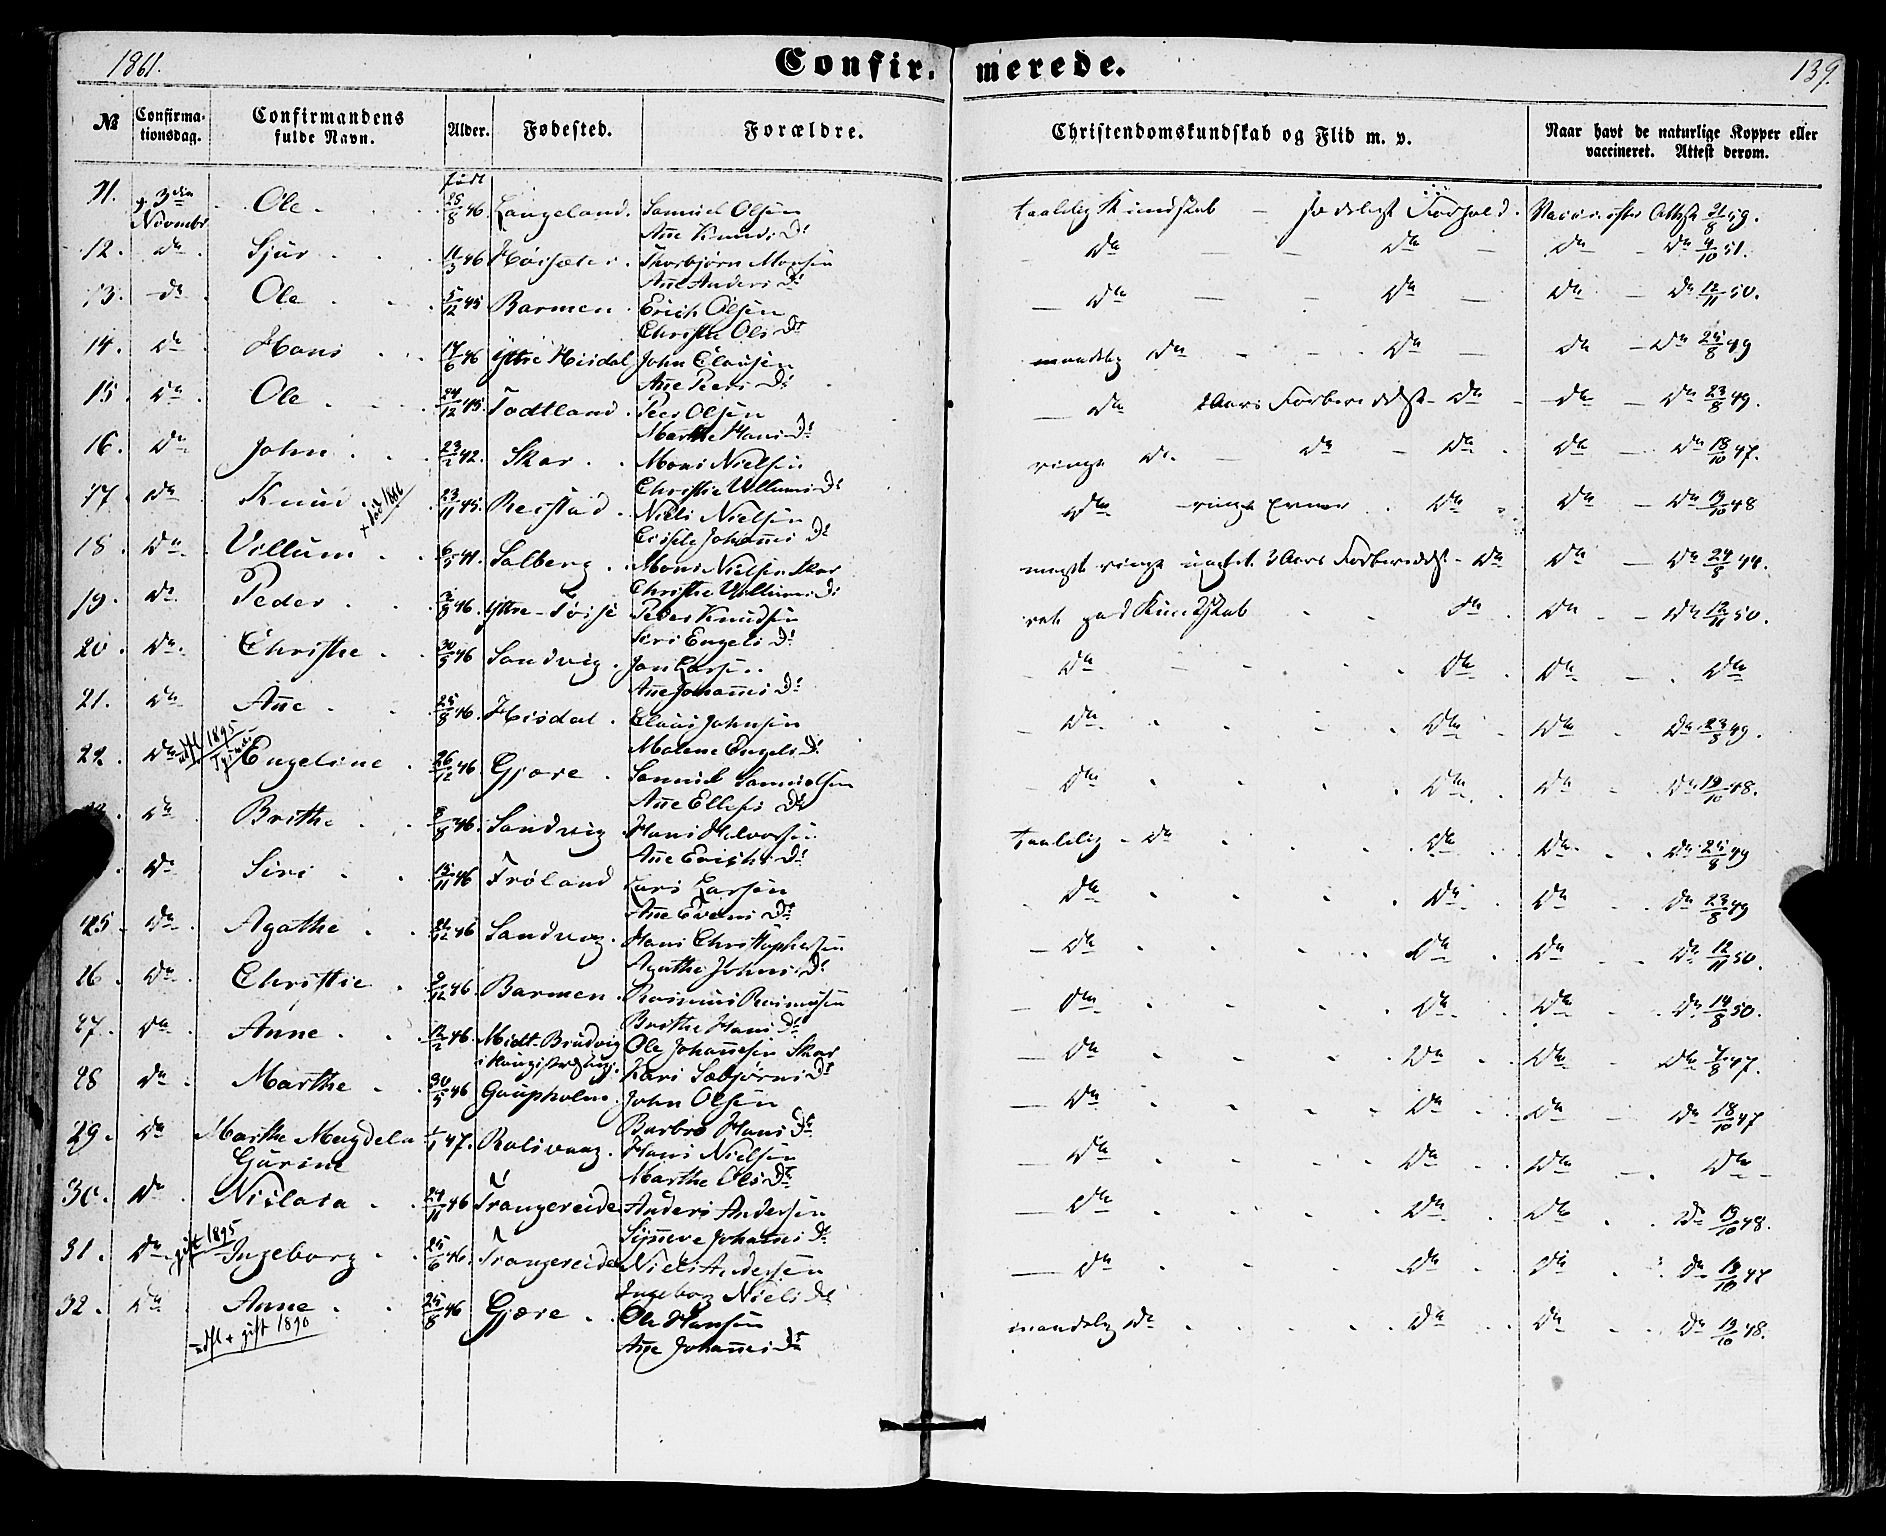 1861.
Confir. merede.
139.
№ Confirmationsdag. Confirmandens fulde Navn. Alder. Fødested. Forældre. Christendomskundskab og Flid m. v. Naar havt de naturlige Kopper eller vaccineret. Attest derom.
født
11. 3die Novmbr Ole 25/8 46. Langeland. Samuel Olsen taalelig Kundskab — sædeligt Forhold. Attest 21/8 59.
Ane Knuds Dr
12. do Sjur 11/3 46 Høisæter. Thorbjørn Monsen do do do do 4/10 51.
Ane Anders Dr
13. do Ole 5/12 45 Barmen. Erich Olsen do do do do 12/11 50.
Christie Ols Dr
14. do Hans 17/6 46 Yttre Hisdal John Clausen maadelig do do do do 24/8 49
Ane Peers Dr
15. do Ole 24/12 45. Todtland. Peer Olsen do 2 Aars Forberedelse do do do 23/8 49.
Marthe Hans Dr
16. do John 23/2 42. Skar. Mons Nielsen ringe do do do do do 18/10 47.
Christie Villums Dr
17. do Knud + död 1886 23/11 45. Reistad. Niels Nielsen do ringe Evner do do do 19/10 48
Johannes Dr
18. do Villum 6/5 41. Solberg. Mons Nielsen Skar meget ringe 3 Aars Forberedelse do do do 24/8 44.
Christie Villums Dr
19. do Peder 3/8 46. Yttre-Tøise Peder Knudsen ret god Kundskab do do do 12/11 50.
Siri Engels Dr
20. do Christhe 30/5 46 Sandvig. Jon Larsen do do do do
Ane Johannes Dr
21. do Ane 25/8 46. Hisdal. Claus Johnsen do do do do 23/8 49.
Malene Engels Dr
22. do Engeline 26/12 46. Gjøre. Samuel Samuelsen do do do do 19/10 48.
1895
Ane Ellefs Dr
do Brithe 3/8 46. Sandvig Hans Halvorsen taalelig do do do do 25/8 49
Ane Erichs Dr
do Siri 15/11 46 Frøland Lars Larsen do do do do 23/8 49
Ane Evens Dr
25. do Agathe 46 Sandvig. Hans Christophersen do do do do 12/11 50.
Agathe Johns Dr
26 do Christie 9/12 46. Barmen. Rasmus Rasmusen do do do do 14/8 50.
Brithe Hans Dr
27. do Anne 12/2 46. Midt-Brudvig Ole Johannesen Skar do do do do 7/8 47.
Kari Sæbjørns Dr
28 do Marthe 30/5 46 Gaupholm. John Olsen do do do do 18/10 47
Barbro Hans Dr
29. do Marthe Magdela 1/1 47. Rolsvaag. Hans Nielsen do do do do
Gurine Marthe Ols Dr
30. do Nislava 24/11 46 Trangereide Anders Andersen do do do do 19/10 48.
Synneve Johannes Dr
31. do gift 1895 Ingeborg 25/6 46. Trangereide Niels Andersen do do do do 18/10 47
Ingeborg Niels Dr
32. do Anne 25/8 46 Gjøre. Ole Hansen maadelig do do do do 19/10 48.
udfl + gift 1890 Ane Johannes Dr